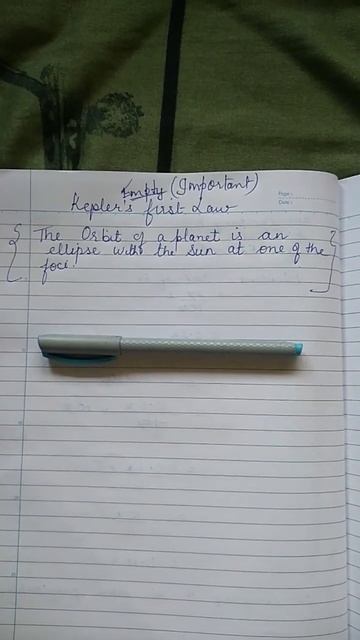 Empty (Important)
Page:
Date:
Kepler's first Law
{ The Orbit of a planet is an
ellipse with the Sun at one of the
foci. }